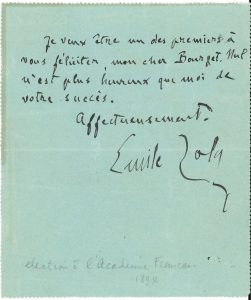 Je veux être un des premiers à
vous féliciter, mon cher Bourget. Nul
n'est plus heureux que moi de
votre succès.
Affectueusement.
Emile Zola
election à l'Académie Français